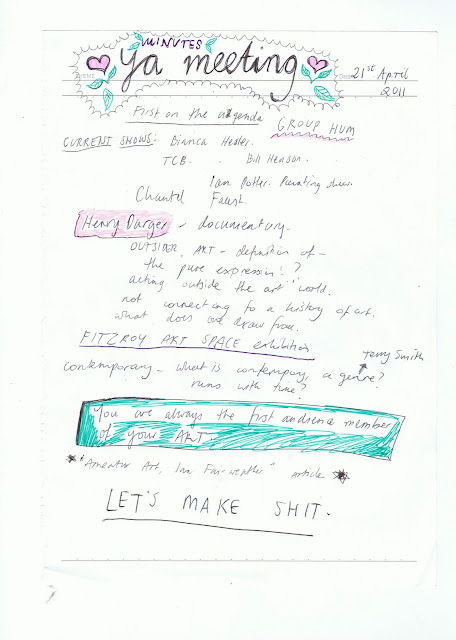 MINUTES
ya meeting
21st April
2011
First on the agenda
GROUP HUM
CURRENT SHOWS: Bianca Hester.
TCB. . Bill Henson.
Ian Potter. Painting show.
Chantel Faust.
Henry Darger - documentary.
OUTSIDER ART - definition of -
the pure expression!?
acting outside the "art" world.
not connecting to a history of art.
what does one draw from.
FITZROY ART SPACE exhibition
Terry Smith
contemporary - what is contempory, a genre?
runs with time?
You are always the first audience member
of your ART.
* "Amateur Art, Ian Fairweather" article *
LET'S MAKE SHIT.